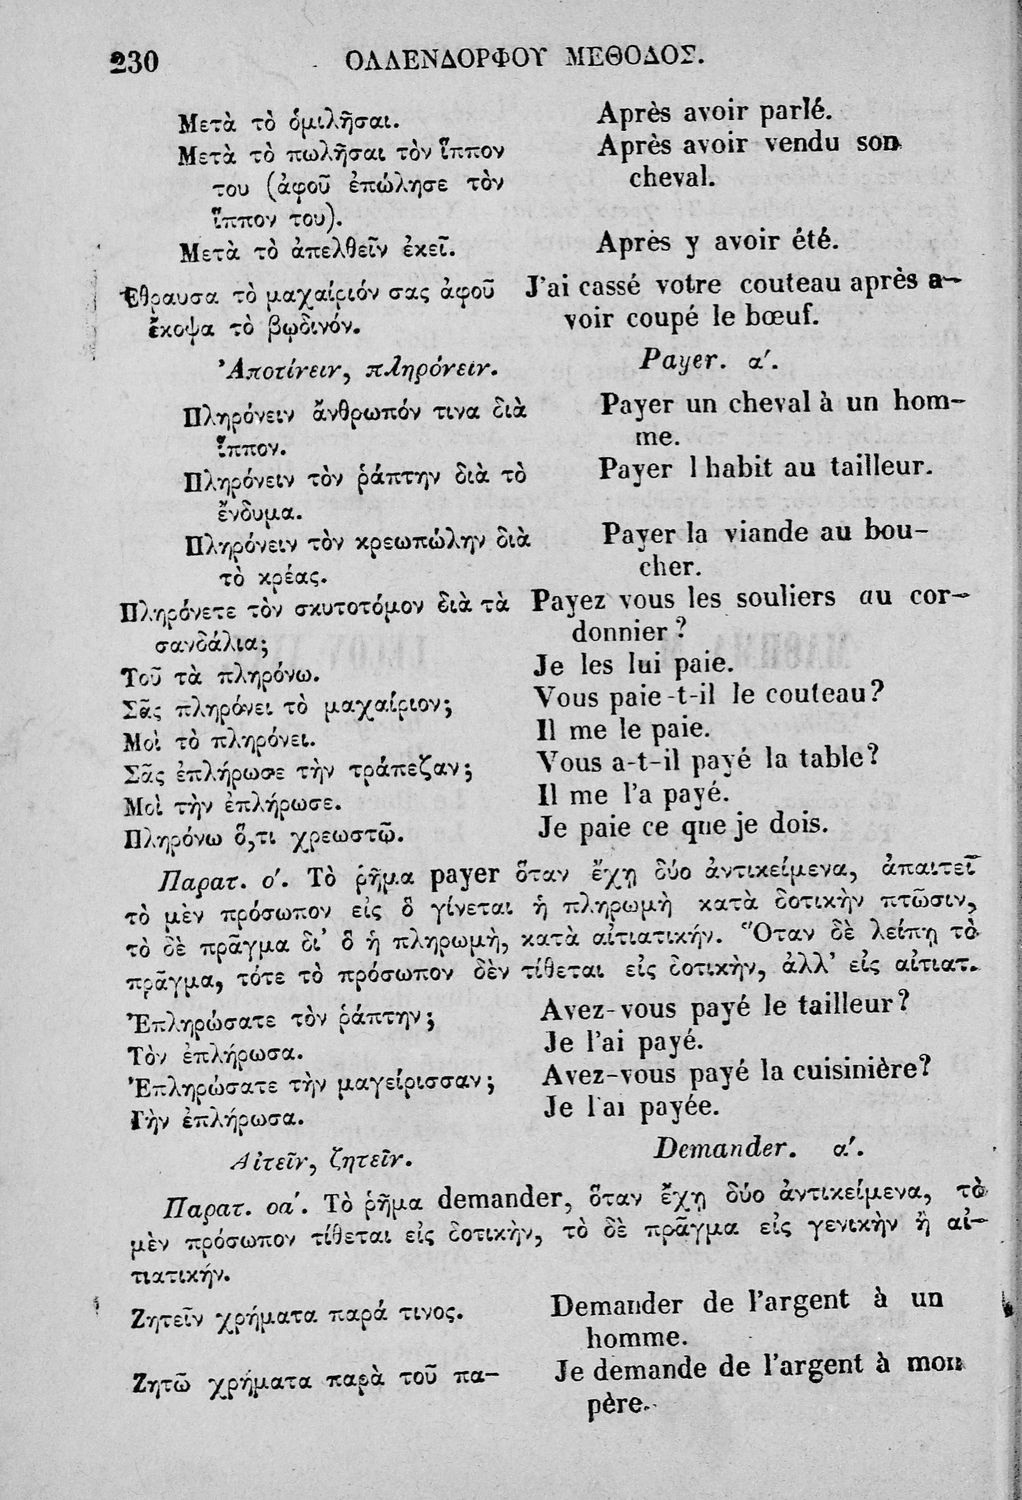 230 ΟΛΛΕΝΔΟΡΦΟΥ ΜΕΘΟΔΟΣ.
Μετὰ τὸ ὁμιλῆσαι.
Μετὰ τὸ πωλῆσαι τὸν ἵππον
του (ἀφοῦ ἐπώλησε τὸν
ἵππον του).
Μετὰ τὸ ἀπελθεῖν ἐκεῖ.
Ἔθραυσα τὸ μαχαίριόν σας ἀφοῦ
ἔκοψα τὸ βῳδινόν.
Ἀποτίνειν, πληρόνειν.
Πληρόνειν ἄνθρωπόν τινα διὰ
ἵππον.
Πληρόνειν τὸν ῥάπτην διὰ τὸ
ἔνδυμα.
Πληρόνειν τὸν κρεωπώλην διὰ
τὸ κρέας.
Πληρόνετε τὸν σκυτοτόμον διὰ τὰ
σανδάλια;
Τοῦ τὰ πληρόνω.
Σᾶς πληρόνει τὸ μαχαίριον;
Μοὶ τὸ πληρόνει.
Σᾶς ἐπλήρωσε τὴν τράπεζαν;
Μοὶ τὴν ἐπλήρωσε.
Πληρόνω ὅ,τι χρεωστῶ.
Après avoir parlé.
Après avoir vendu son
cheval.
Après y avoir été.
J'ai cassé votre couteau après a-
voir coupé le bœuf.
Payer. α'.
Payer un cheval à un hom-
me.
Payer l habit au tailleur.
Payer la viande au bou-
cher.
Payez vous les souliers au cor-
donnier?
Je les lui paie.
Vous paie-t-il le couteau?
Il me le paie.
Vous a-t-il payé la table?
Il me l'a payé.
Je paie ce que je dois.
Παρατ. ο'. Τὸ ῥῆμα payer ὅταν ἔχῃ δύο ἀντικείμενα, ἀπαιτεῖ
τὸ μὲν πρόσωπον εἰς ὃ γίνεται ἡ πληρωμὴ κατὰ δοτικὴν πτῶσιν,
τὸ δὲ πρᾶγμα δι' ὃ ἡ πληρωμὴ, κατὰ αἰτιατικήν. Ὅταν δὲ λείπῃ τὸ
πρᾶγμα, τότε τὸ πρόσωπον δὲν τίθεται εἰς δοτικὴν, ἀλλ' εἰς αἰτιατ.
Ἐπληρώσατε τὸν ῥάπτην;
Τὸν ἐπλήρωσα.
Ἐπληρώσατε τὴν μαγείρισσαν;
Τὴν ἐπλήρωσα.
Αἰτεῖν, ζητεῖν.
Avez-vous payé le tailleur?
Je l'ai payé.
Avez-vous payé la cuisinière?
Je l'ai payée.
Demander. α'.
Παρατ. οα'. Τὸ ῥῆμα demander, ὅταν ἔχῃ δύο ἀντικείμενα, τὸ
μὲν πρόσωπον τίθεται εἰς δοτικὴν, τὸ δὲ πρᾶγμα εἰς γενικὴν ἢ αἰ-
τιατικήν.
Ζητεῖν χρήματα παρά τινος.
Ζητῶ χρήματα παρὰ τοῦ πα-
Demander de l'argent à un
homme.
Je demande de l'argent à mon
père.